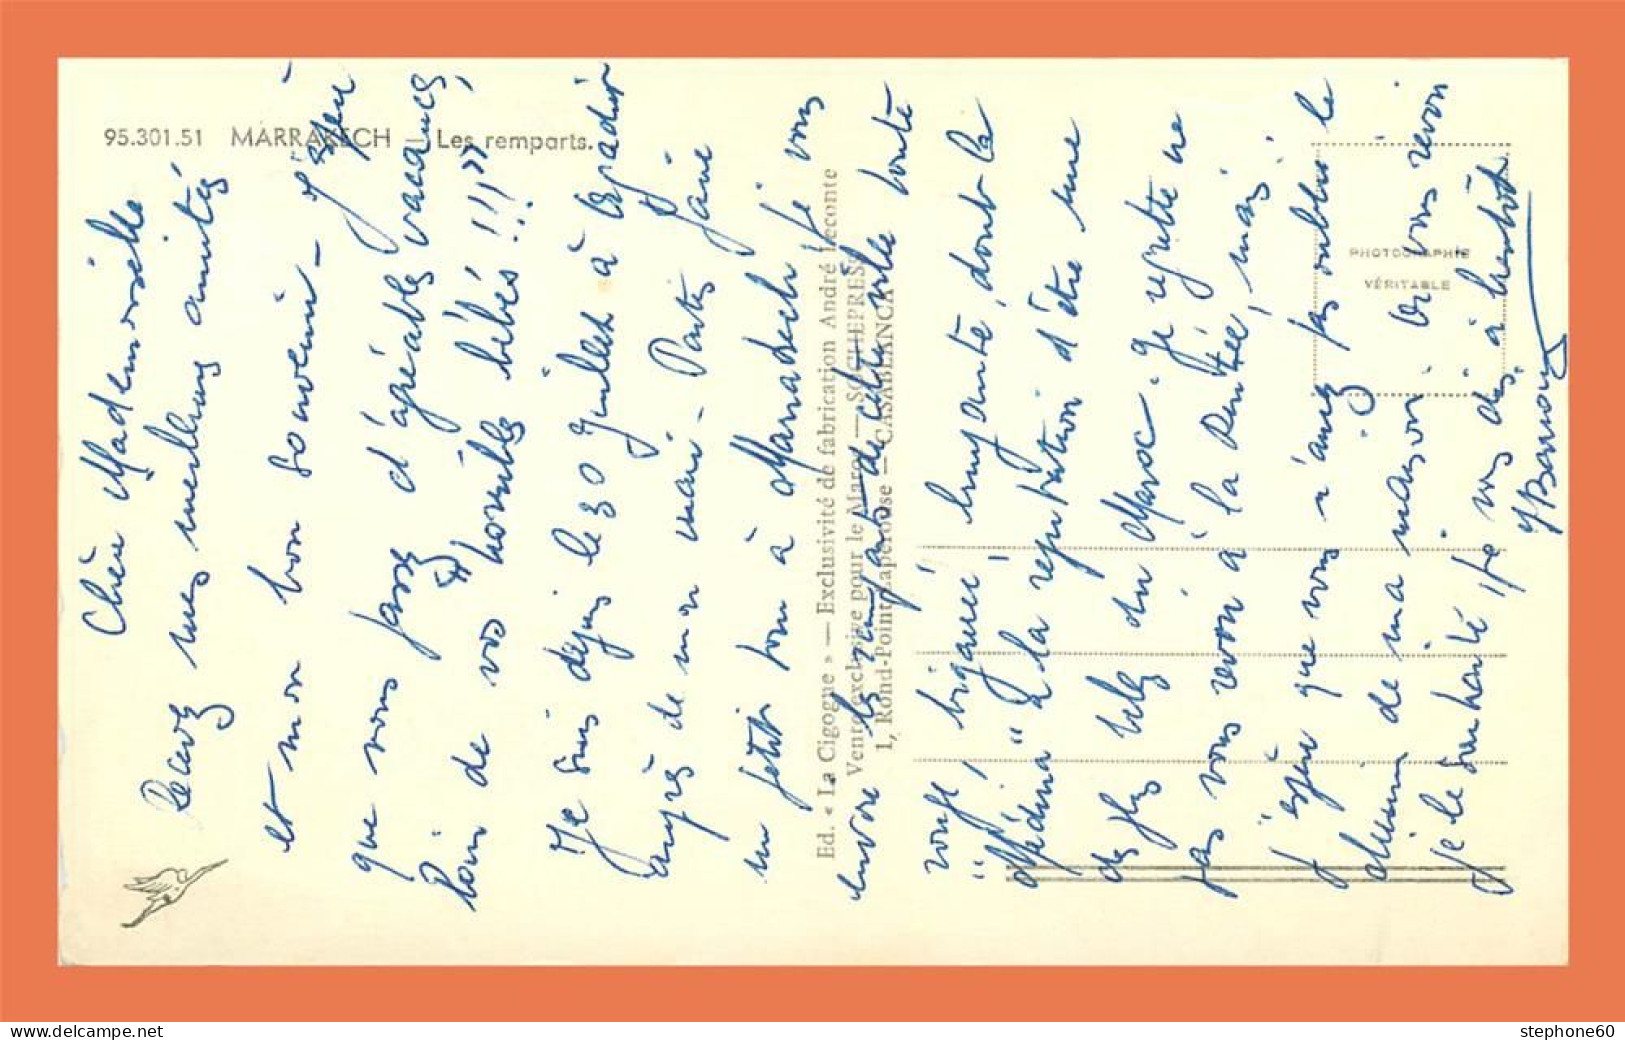 95.301.51 MARRAKECH — Les remparts.
Chère Mademoiselle
Recevez mes meilleurs amitiés
et mon bon souvenir – J'espère
que vous passez d'agréables vacances,
loin de vos "horribles bébés !!!"
Je suis depuis le 30 Juillet à Agadir
auprès de mon mari – Partis faire
un petit tour à Marrakech je vous
envoie les remparts de cette ville toute
rouge, bigarrée, bruyante, dont la
"Médina" a la réputation d'être une
des plus belles du Maroc. Je regrette ne
pas vous revoir à la rentrée, mais
j'espère que vous n'aurez pas oublié le
chemin de ma maison. Au vous revoir
je le souhaite, je vous dis à bientôt
Ed. « La Cigogne » — Exclusivité de fabrication André Leconte
Vente exclusive pour le Maroc — SOCHEPRESS
1, Rond-Point Lapérouse — CASABLANCA
PHOTOGRAPHIE
VÉRITABLE
www.delcampe.net
stephone60